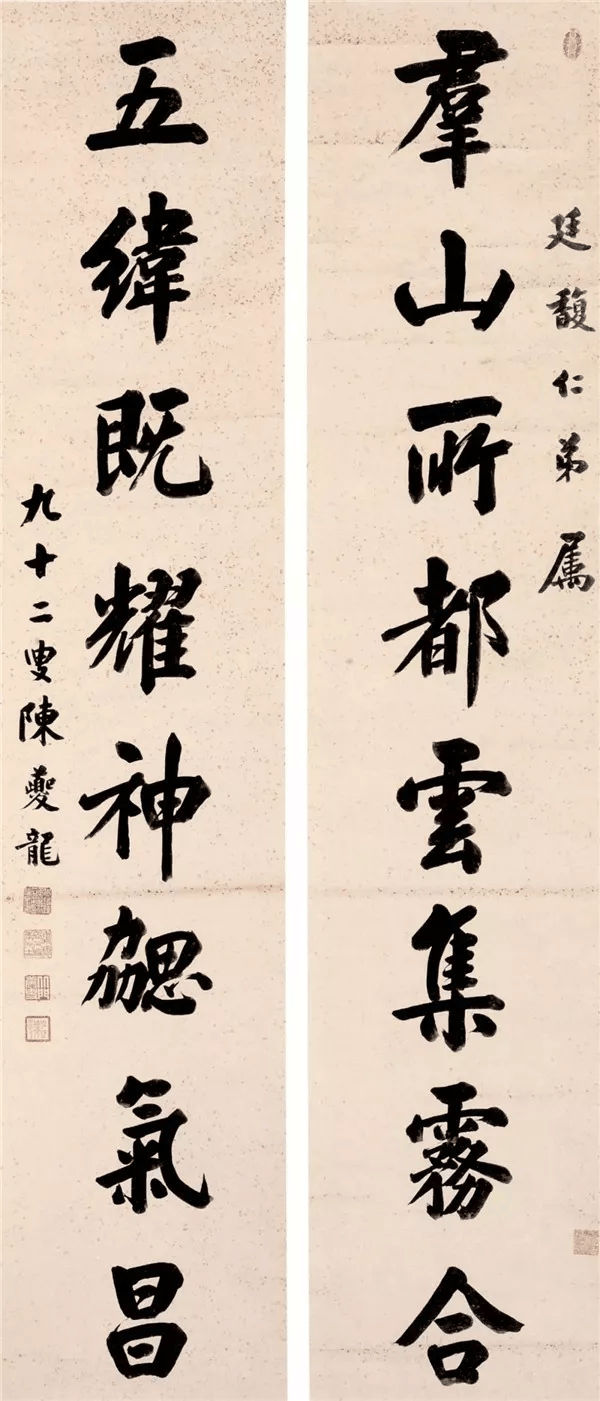 廷馥仁弟属
羣山所都雲集霧合
五緯既耀神勰氣昌
九十二叟陳夔龍